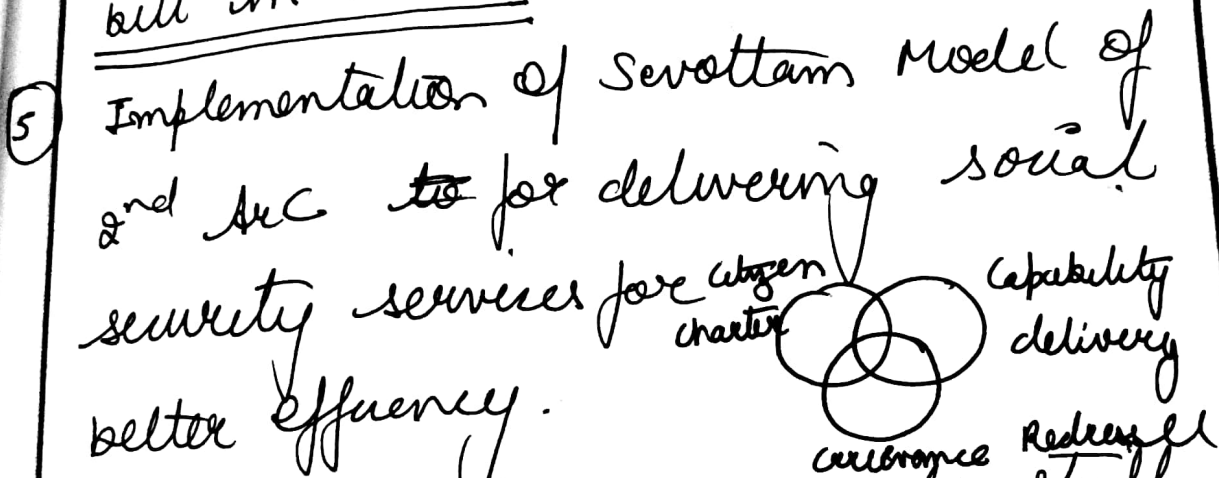 bill
5
Implementation of Sevottam Model of
2nd ARC to for delivering social
security services for
better efficiency.
Citizen
charter
Capability
delivery
Grievance Redressal